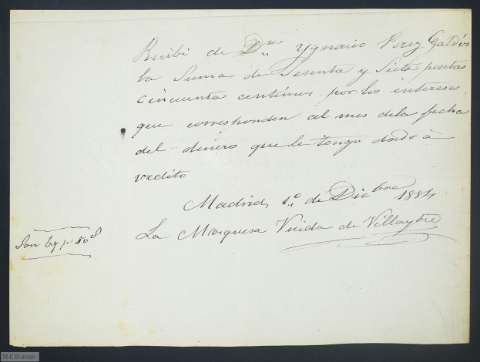 Recibi de Dn Ygnacio Perez Galdós
la Suma de Sesenta y Siete pesetas
cincuenta centimos por los intereses
que corresponden al mes de la fecha
del dinero que le tengo dado à
redito
Madrid 1º de Dicbre 1884
La Marquesa Viuda de
Son 67 p. 50 cs